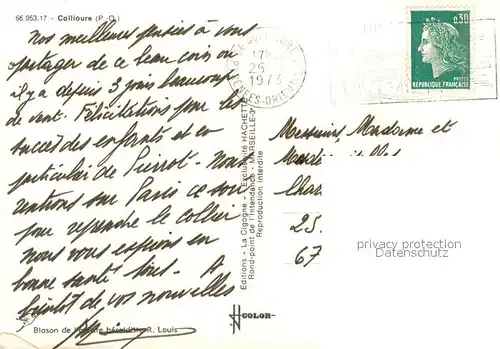 66.053.17 - Collioure (P.-O.)
Nos meilleures pensées à vous
partager de ce beau coin ou
il y a depuis 3 jours beaucoup
de vent. Félicitations pour les
succès des enfants et en
particulier de Pierrot. Nous
rentrons sur Paris ce soir
pour reprendre le collier
nous vous espérons en
bonne santé tous. A
bientôt de vos nouvelles
Blason de R. Louis
Editions "La Cigogne" Exclusivité HACHETTE
Rond-point de l'Intendance - MARSEILLE-3e
Reproduction interdite
COLOR
17H
25
1973
PYRENEES-ORIENT
0,30
POSTES
REPUBLIQUE FRANÇAISE
Messieurs, Madame et
25.
67
privacy protection
Datenschutz